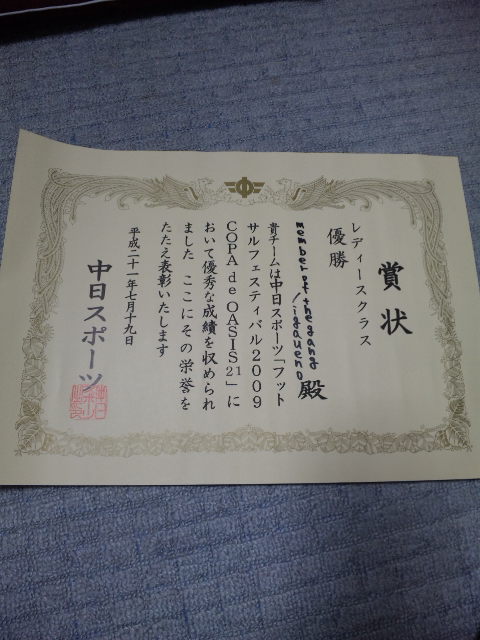 賞状
レディースクラス
優勝
member of the gang
/igaueno 殿
貴チームは中日スポーツ「フット
サルフェスティバル2009
COPA de OASIS21」に
おいて優秀な成績を収められ
ました ここにその栄誉を
たたえ表彰いたします
平成二十一年七月十九日
中日スポーツ